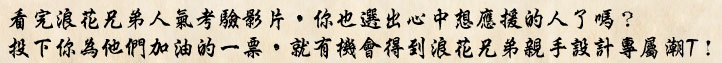 看完浪花兄弟人氣考驗影片，你也選出心中想應援的人了嗎？
投下你為他們加油的一票，就有機會得到浪花兄弟親手設計專屬潮T！